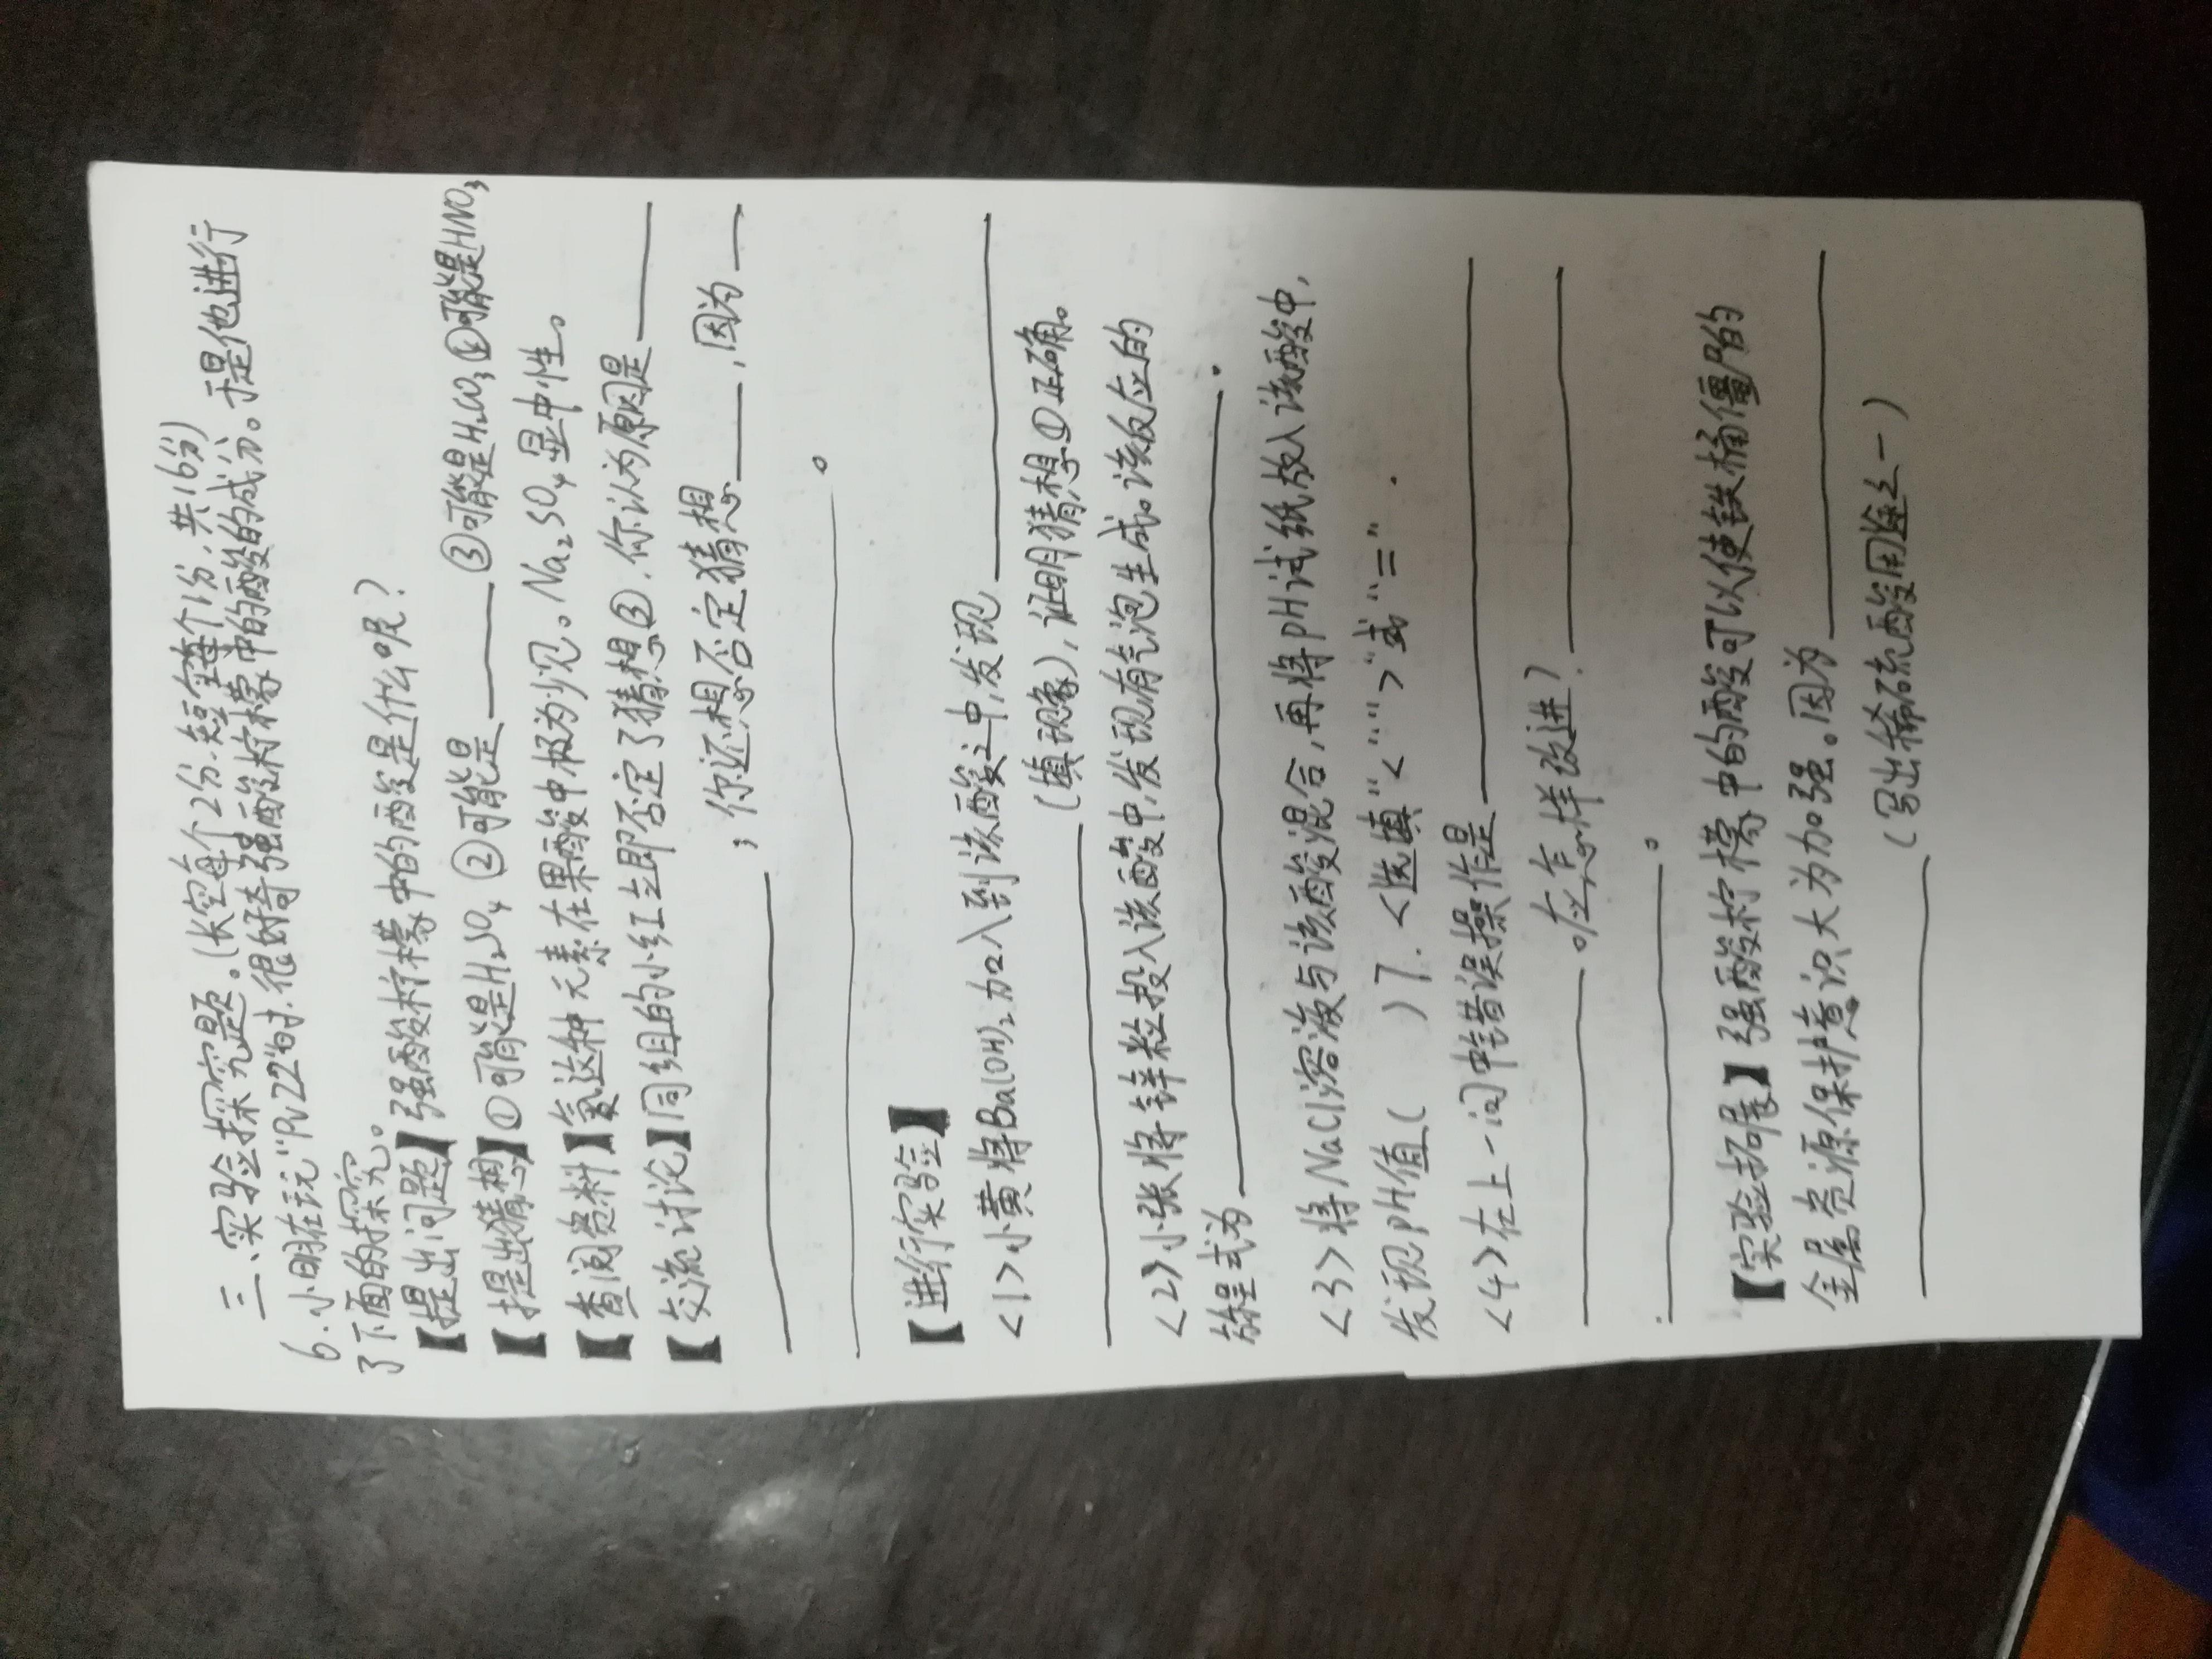 三、实验探究题。(长空每个2分.短空每个1分,共16分)
6.小明在玩"PvZ2"时.很好奇强酸柠檬中的酸的成分。于是他进行
了下面的探究。
【提出问题】强酸柠檬中的酸是什么呢?
【提出猜想】①可能是H₂SO₄ ②可能是____ ③可能是H₂CO₃ ④可能是HNO₃
【查阅资料】氮这种元素在果酸中极为少见。Na₂SO₄显中性。
【交流讨论】同组的小红立即否定了猜想③.你认为原因是____
____;你还想否定猜想____,因为____
____。
【进行实验】
<1>小黄将Ba(OH)₂加入到该酸之中,发现____
____(填现象),证明猜想①正确。
<2>小张将锌粒投入该酸中,发现有气泡生成。该反应的
方程式为____.
<3>将NaCl溶液与该酸混合,再将pH试纸放入该酸中,
发现pH值( )7.<选填"<"">"或"=".
<4>在上一问中错误操作是____
____。应怎样改进?____
____。
【实验拓展】强酸柠檬中的酸可以使铁桶僵尸的
金属资源保护意识大为加强。因为____
____(写出稀硫酸用途之一)